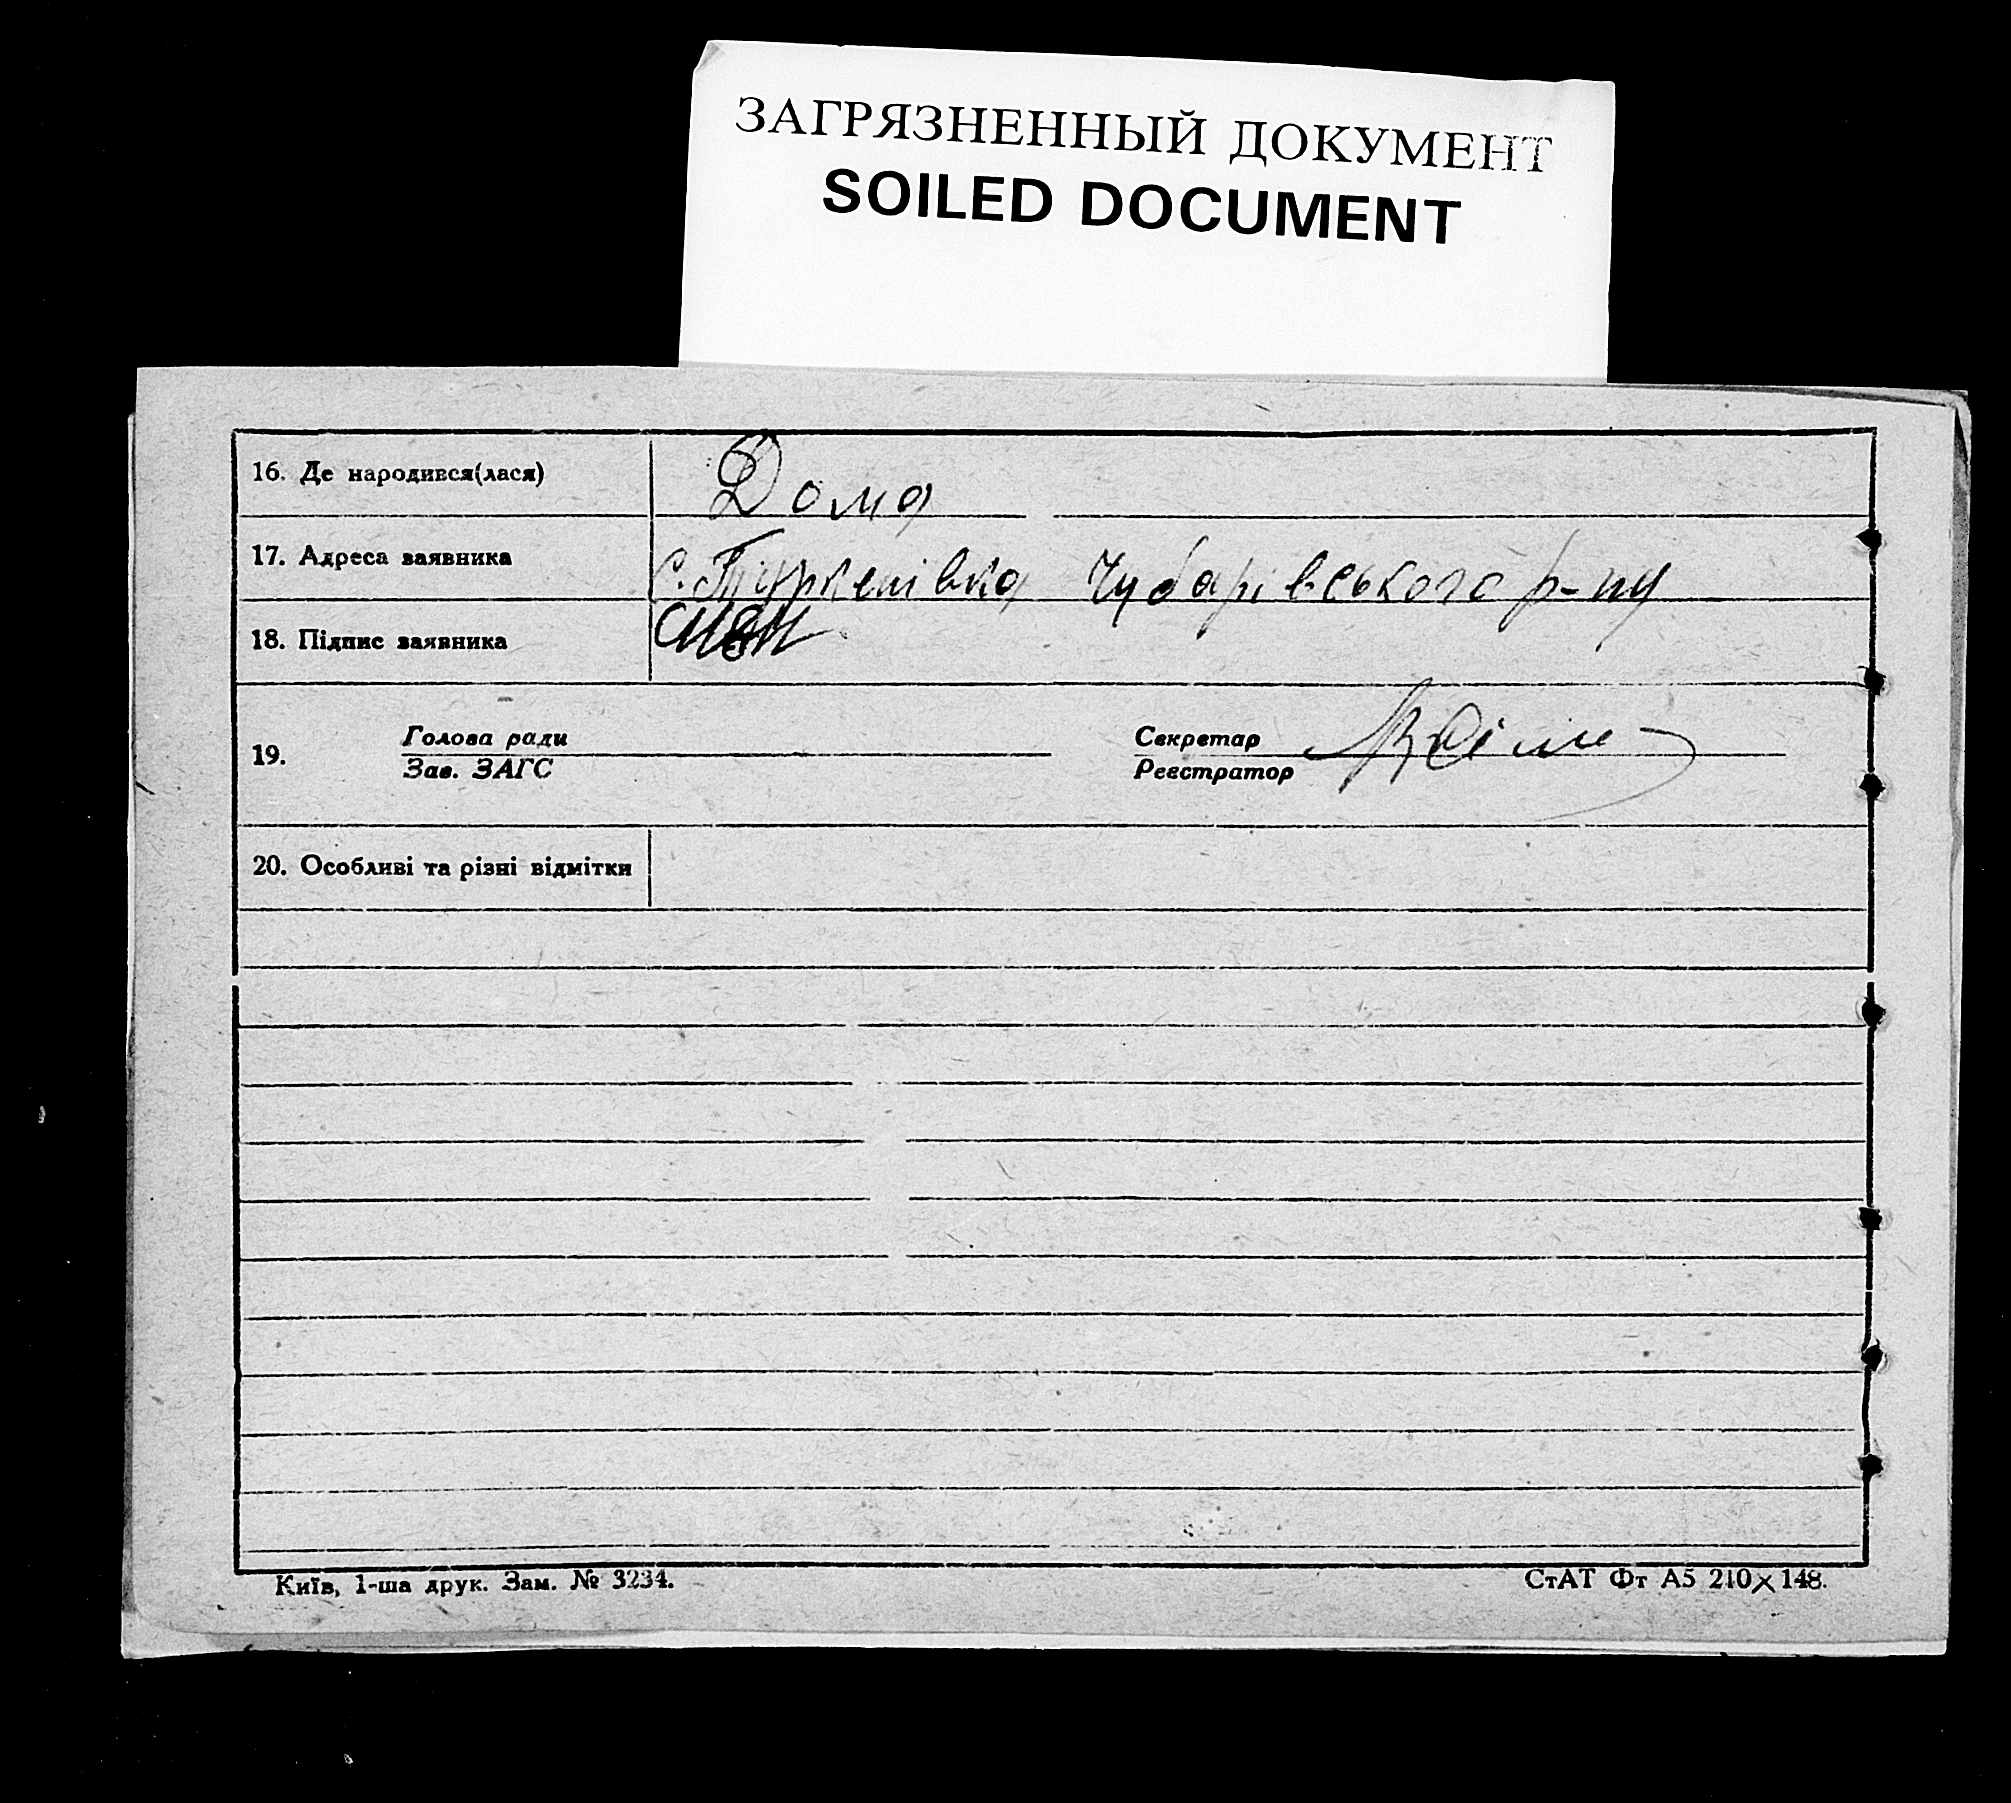 ЗАГРЯЗНЕННЫЙ ДОКУМЕНТ
SOILED DOCUMENT
16. Де народився(лася) Дома
17. Адреса заявника с. Туркенівка Чубарівського р-ну
18. Підпис заявника
19. Голова ради Секретар
Зав. ЗАГС Реєстратор
20. Особливі та різні відмітки
Київ, 1-ша друк. Зам. № 3234. СтАТ Фт А5 210×148.